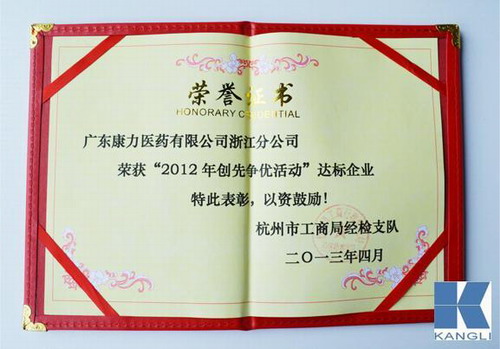 荣誉证书
HONORARY CREDENTIAL
广东康力医药有限公司浙江分公司
荣获“2012年创先争优活动”达标企业
特此表彰，以资鼓励！
杭州市工商局经检支队
二〇一三年四月
KANGLI